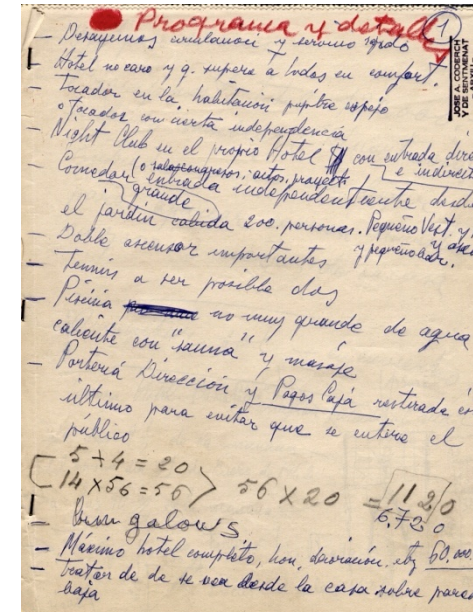 Programa y detalles
1
JOSE A. CODERCH
Y DE SENTMENAT
- Desayunos circulacion y servicio
- Hotel no caro y q. supere a todos en comfort.
- Tocador en la habitación pupitre espejo
o tocador con cierta independencia
- Night Club en el propio Hotel con entrada
e indirecta
- Comedor (o salacongresos; autos. proyect.
grande entrada independientemente desde
el jardín cabida 200. personas. Pequeño Vest. y
y pequeño bar.
- Doble ascensor importantes
- Tennis a ser posible dos
- Piscina no muy grande de agua
caliente con "sauna" y masaje
- Portería Dirección y Pagos Cajá retirada
último para evitar que se entere el
público
5 + 4 = 20
14 X 56 = 56
56 X 20 = 1120
6.720
- Bungalows
- Máximo hotel completo, hon, decoración, etz 60.000
- tratar de de se vea desde la casa sobre
baja